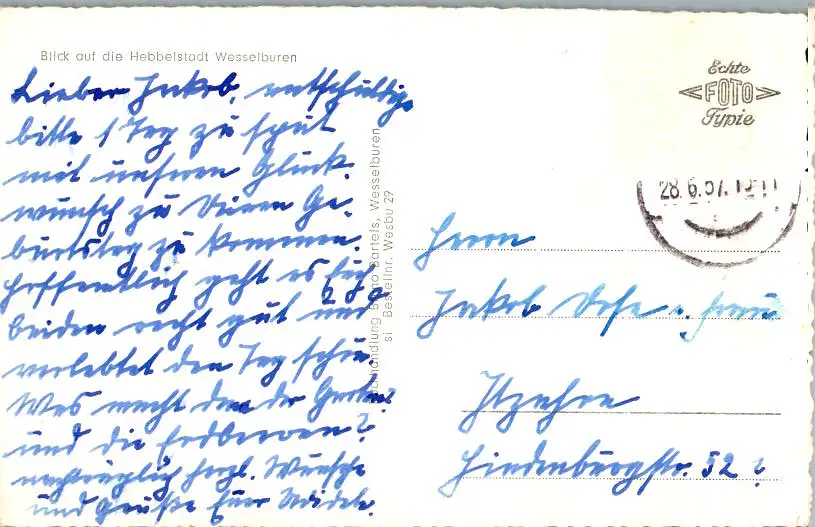 Blick auf die Hebbelstadt Wesselburen
Lieber Jakob, entschuldige
bitte 1 Tag zu spät
mit unseren Glück-
wunsch zu Deinen Ge-
burtstag zu kommen.
Hoffentlich geht es Euch
beiden recht gut und
verlebtet den Tag schön.
Was macht denn der Garten?
und die Erdbeeren?
nachträglich herzl. Wünsche
und Grüße Euer
Buchhandlung Bruno Bartels, Wesselburen
si Bestellnr. Wesbu 29
Echte
FOTO
Typie
28.6.57.
Herrn
Jakob u. Frau
Itzehoe
Lindenburgstr. 52